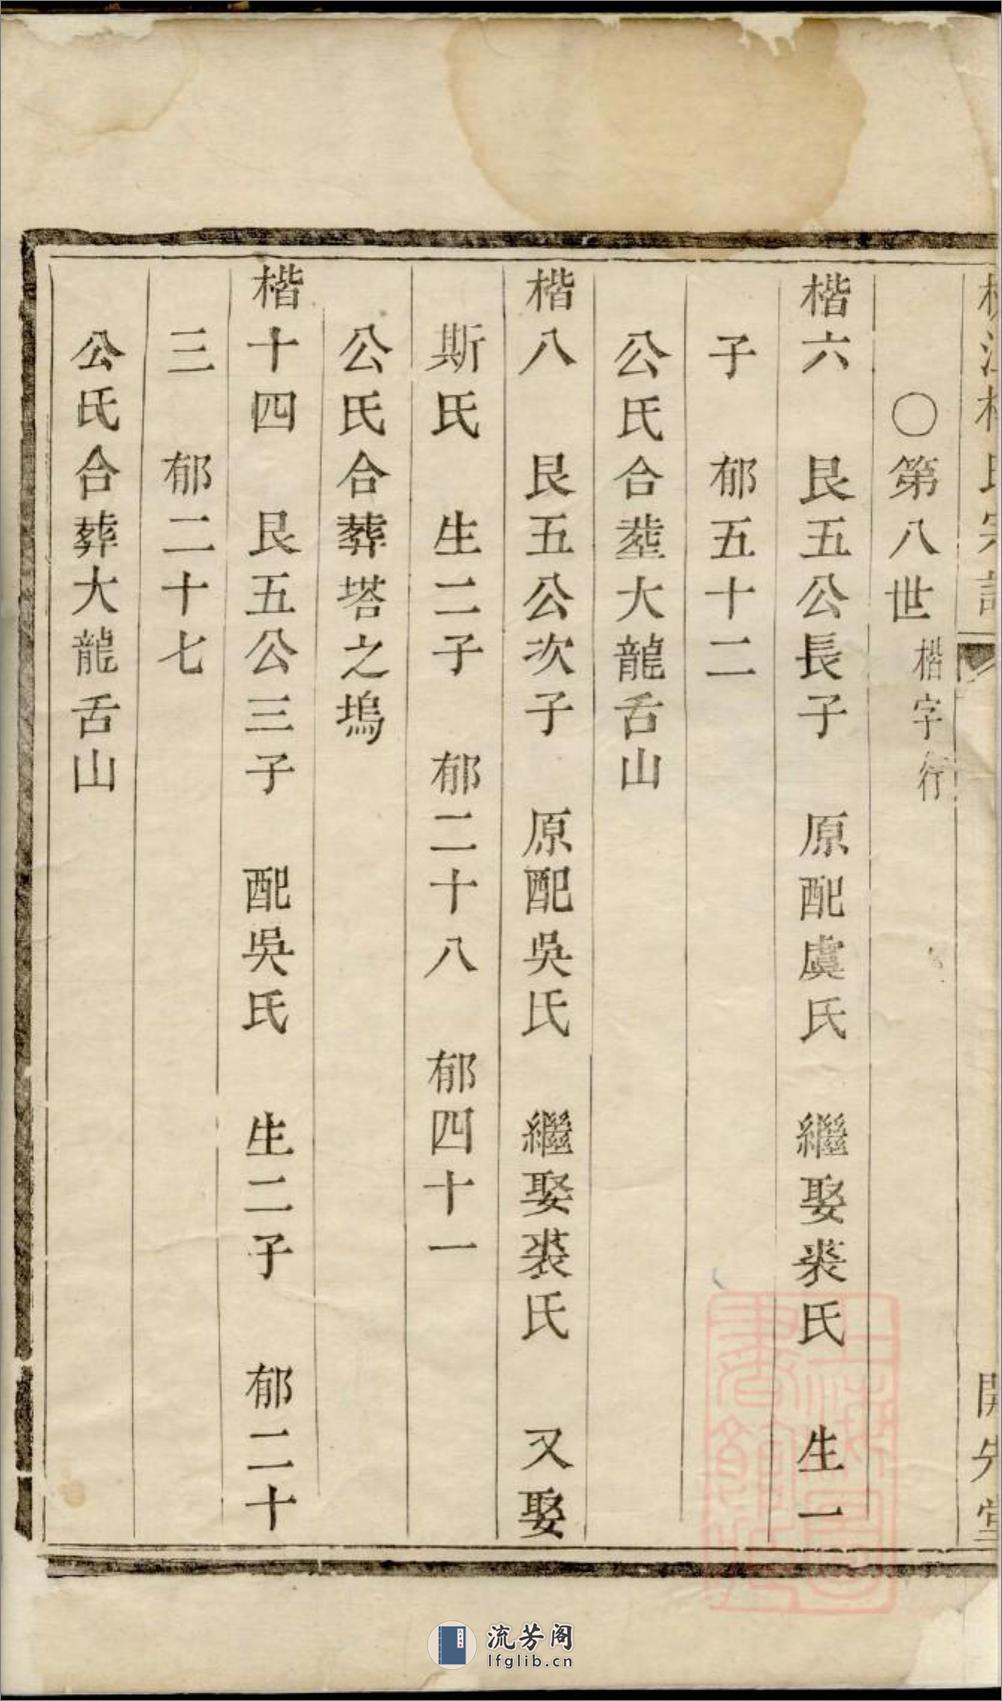 〇第八世楷字行
楷六　艮五公長子　原配虞氏　繼娶裘氏　生一
子　郁五十二
公氏合塟大龍舌山
楷八　艮五公次子　原配吳氏　繼娶裘氏　又娶
斯氏　生二子　郁二十八　郁四十一
公氏合葬塔之塢
楷十四　艮五公三子　配吳氏　生二子　郁二十
三　郁二十七
公氏合葬大龍舌山
開先堂
流芳阁
lfglib.cn